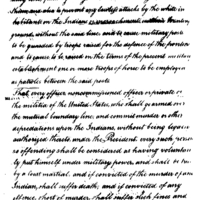 also to prevent any attacks by the white in
habitants on the Indians
ground, without the said line and to cause military posts
to be guarded by troops raised for the defence of the frontier
and to cause to be raised on the terms of the present
establishment one or more troops of horse to be employed
as patroles between the said posts
That every officer noncommissioned officer or private in
the militia of the United States, who shall go armed over
the mutual boundary line, and commit murder or other
depredations upon the Indians, without being legally
authorized thereto under the President every such person
so offending shall be considered as having voluntari
ly put himself under military power, and shall be tried
by a Court martial and if convicted of the murder of an
Indian, shall suffer death; and if convicted of any
offence, short of murder, shall suffer such fines and